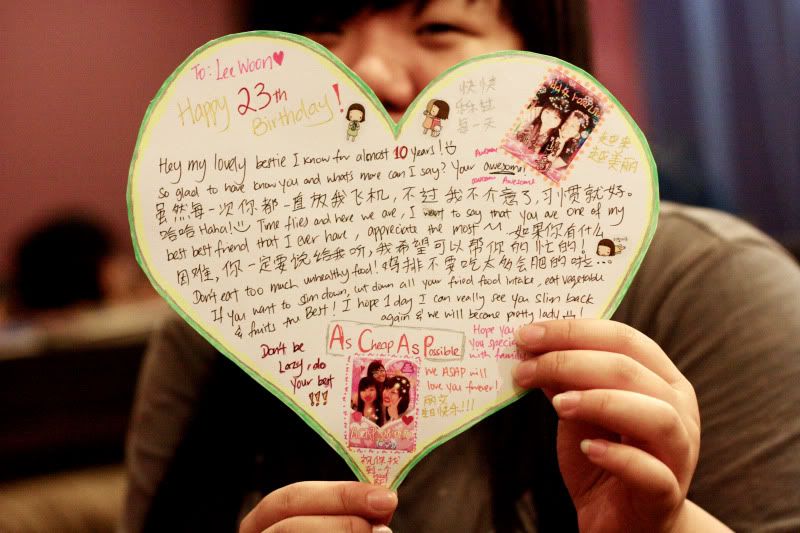 To: Lee Woon
Happy 23rd
Birthday!
快快
乐乐
每一天
越来
越美丽
Hey my lovely bestie I know for almost 10 years!
So glad to have know you and whats more can I say? Your awesome!
Awesome
虽然每一次你都一直放我飞机,不过我不介意了,习惯就好。
哈哈 Haha! Time flies and here we are, I want to say that you are one of my
best best friend that I ever have, appreciate the most ~ 如果你有什么
困难,你一定要说给我听,我希望可以帮你的忙的!
Don't eat too much unhealthy food! 鸡排不要吃太多会胖的啦...
If you want to slim down, cut down all your fried food intake, eat vegetable
& fruits the Best! I hope 1 day I can really see you slim back
again & we will become pretty lady!
Don't be
Lazy, do
your best
!!!
As Cheap As Possible
Hope you
you special
with family
We ASAP will
love you forever!
生日快乐!!!
祝你找
到一个